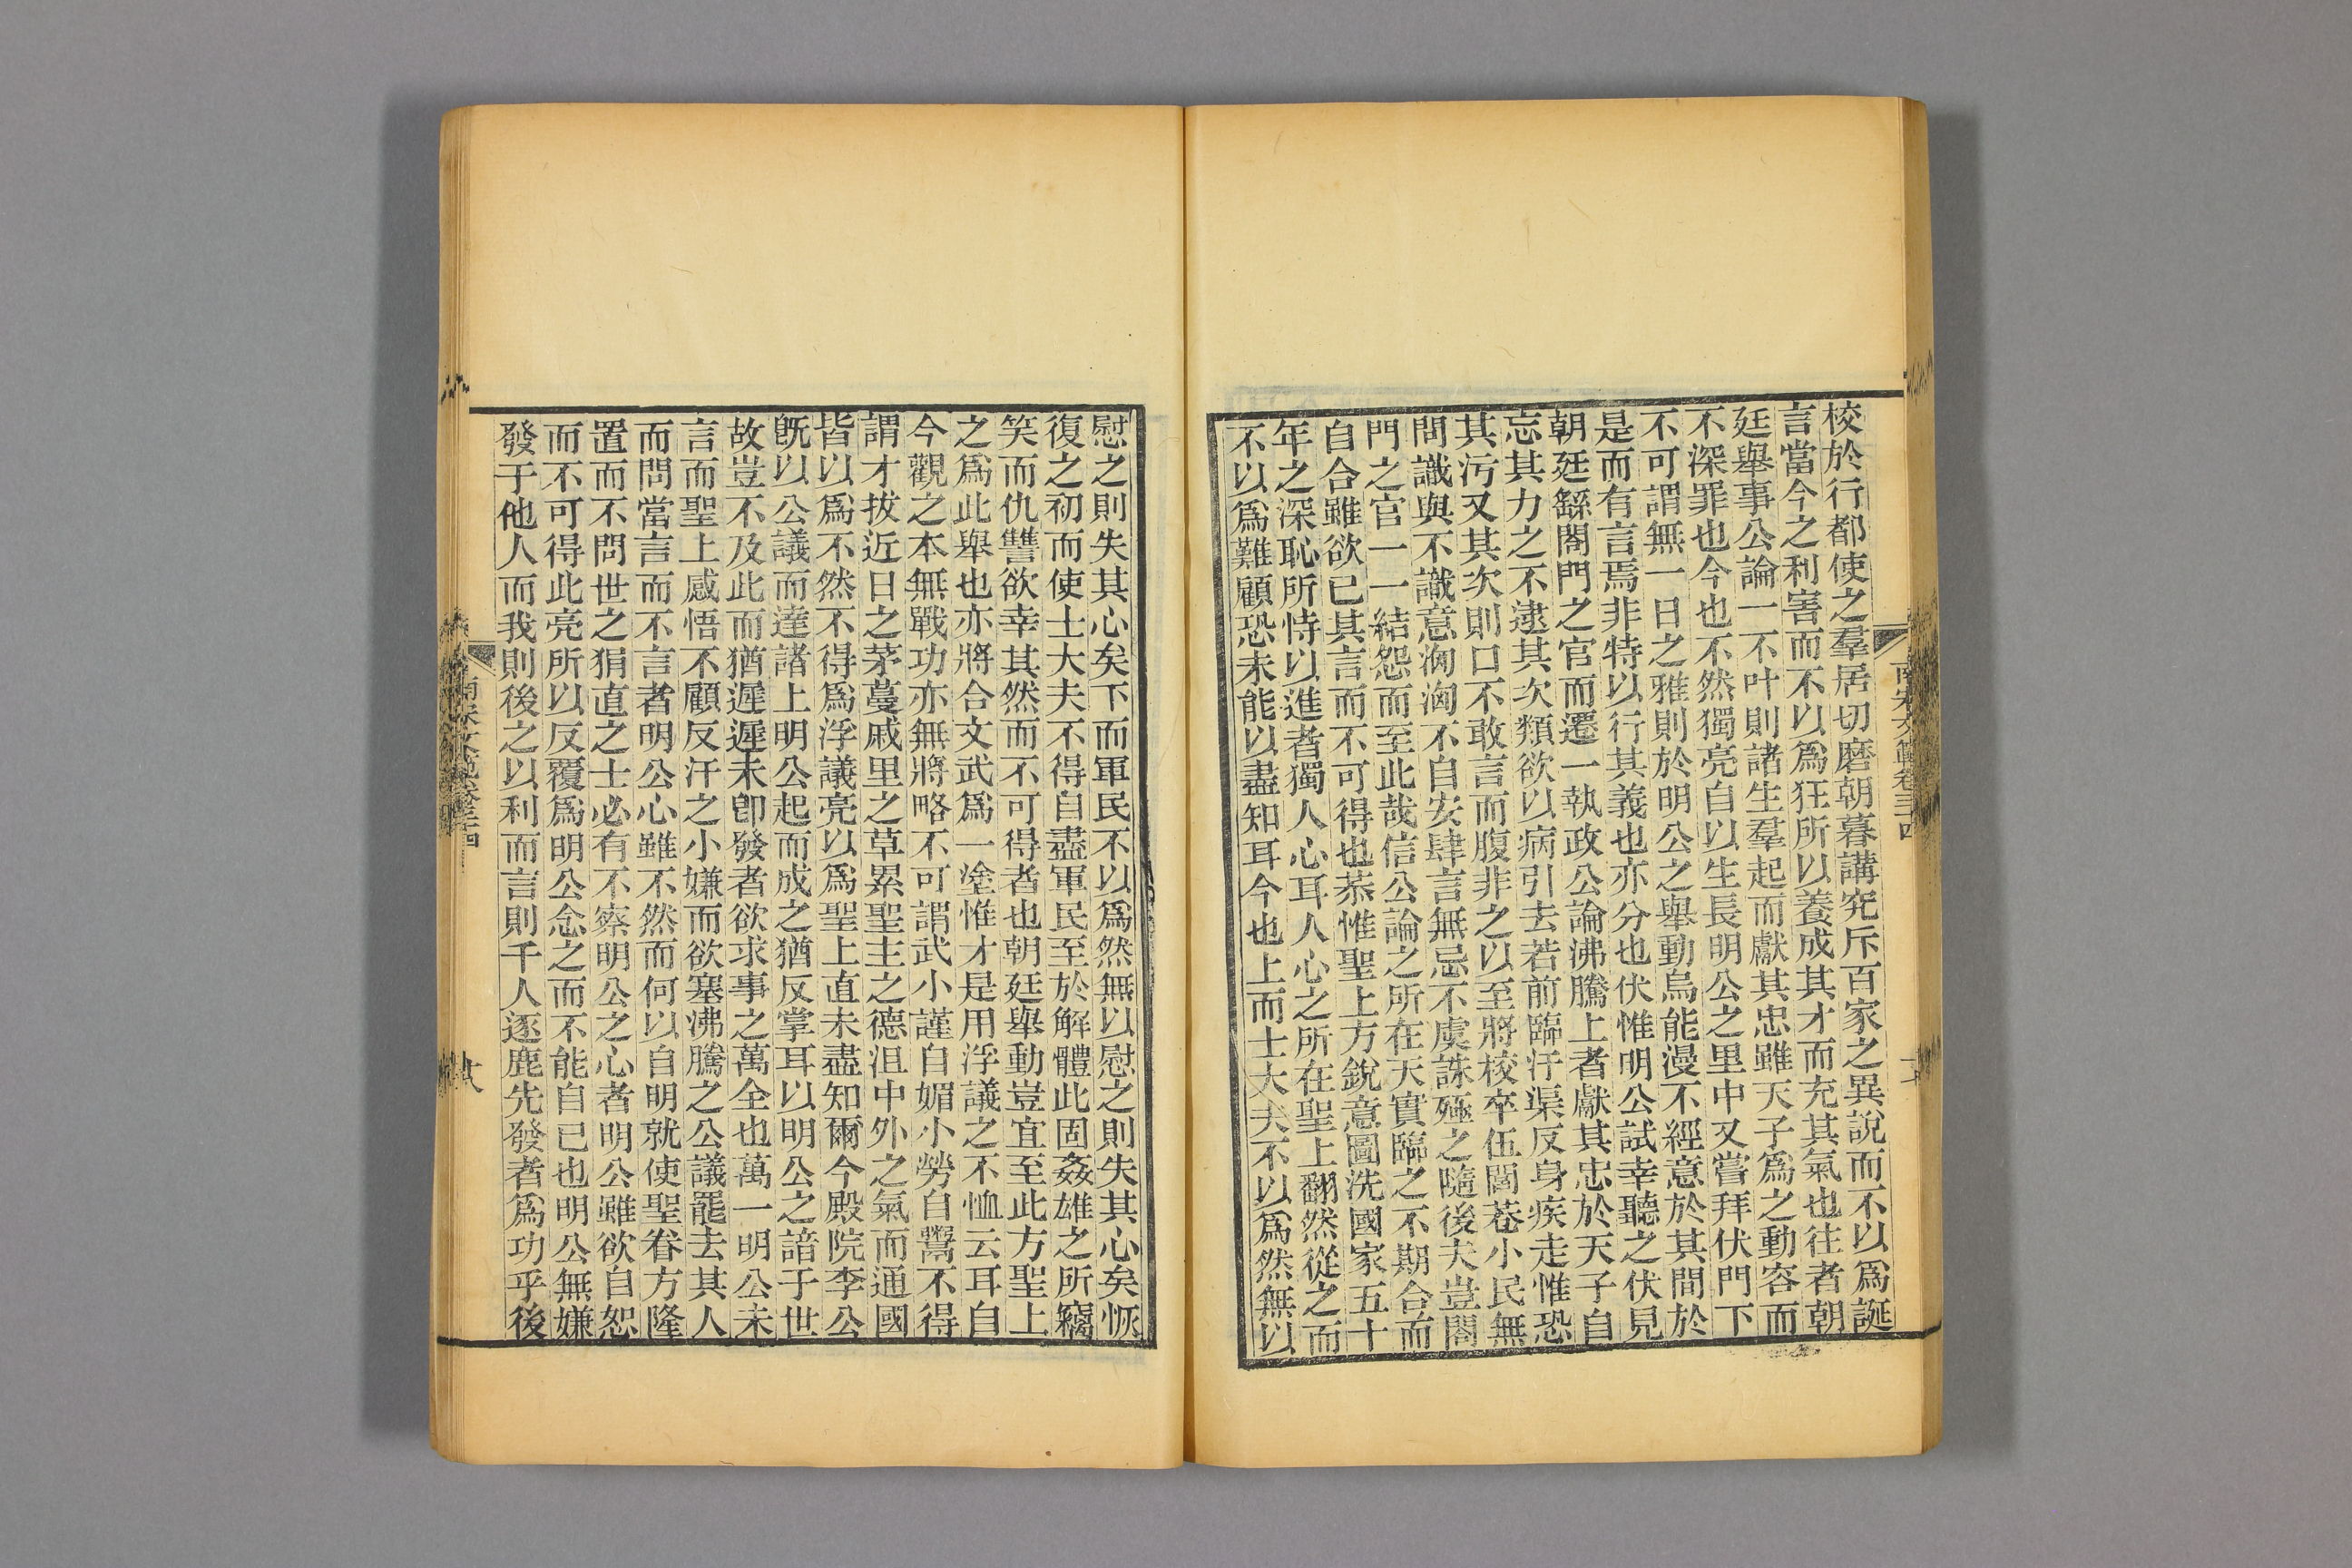 校於行都使之羣居切磨朝暮講究斥百家之異說而不以爲誕
言當今之利害而不以爲狂所以養成其才而充其氣也往者朝
廷舉事公論一不叶則諸生羣起而獻其忠雖天子爲之動容而
不深罪也今也不然獨亮自以生長明公之里中又嘗拜伏門下
不可謂無一日之雅則於明公之舉動烏能漫不經意於其間於
是而有言焉非特以行其義也亦分也伏惟明公試幸聽之伏見
朝廷繇閤門之官而遷一執政公論沸騰上者獻其忠於天子自
忘其力之不逮其次類欲以病引去若前臨汙渠反身疾走惟恐
其污又其次則口不敢言而腹非之以至將校卒伍閭巷小民無
問識與不識意洶洶不自安肆言無忌不虞誅殛之隨後夫豈閤
門之官一一結怨而至此哉信公論之所在天實臨之不期合而
自合雖欲已其言而不可得也恭惟聖上方銳意圖洗國家五十
年之深恥所恃以進者獨人心耳人心之所在聖上翻然從之而
不以爲難顧恐未能以盡知耳今也上而士大夫不以爲然無以
南宋文範卷三十四
慰之則失其心矣下而軍民不以爲然無以慰之則失其心矣恢
復之初而使士大夫不得自盡軍民至於解體此固姦雄之所竊
笑而仇讐欲幸其然而不可得者也朝廷舉動豈宜至此方聖上
之爲此舉也亦將合文武爲一塗惟才是用浮議之不恤云耳自
今觀之本無戰功亦無將略不可謂武小謹自媚小勞自鬻不得
謂才拔近日之茅蔓戚里之草累聖主之德沮中外之氣而通國
皆以爲不然不得爲浮議亮以爲聖上直未盡知爾今殿院李公
旣以公議而達諸上明公起而成之猶反掌耳以明公之諳于世
故豈不及此而猶遲遲未卽發者欲求事之萬全也萬一明公未
言而聖上感悟不顧反汗之小嫌而欲塞沸騰之公議罷去其人
而問當言而不言者明公心雖不然而何以自明就使聖眷方隆
置而不問世之狷直之士必有不察明公之心者明公雖欲自恕
而不可得此亮所以反覆爲明公念之而不能自已也明公無嫌
發于他人而我則後之以利而言則千人逐鹿先發者爲功乎後
南宋文範卷三十四